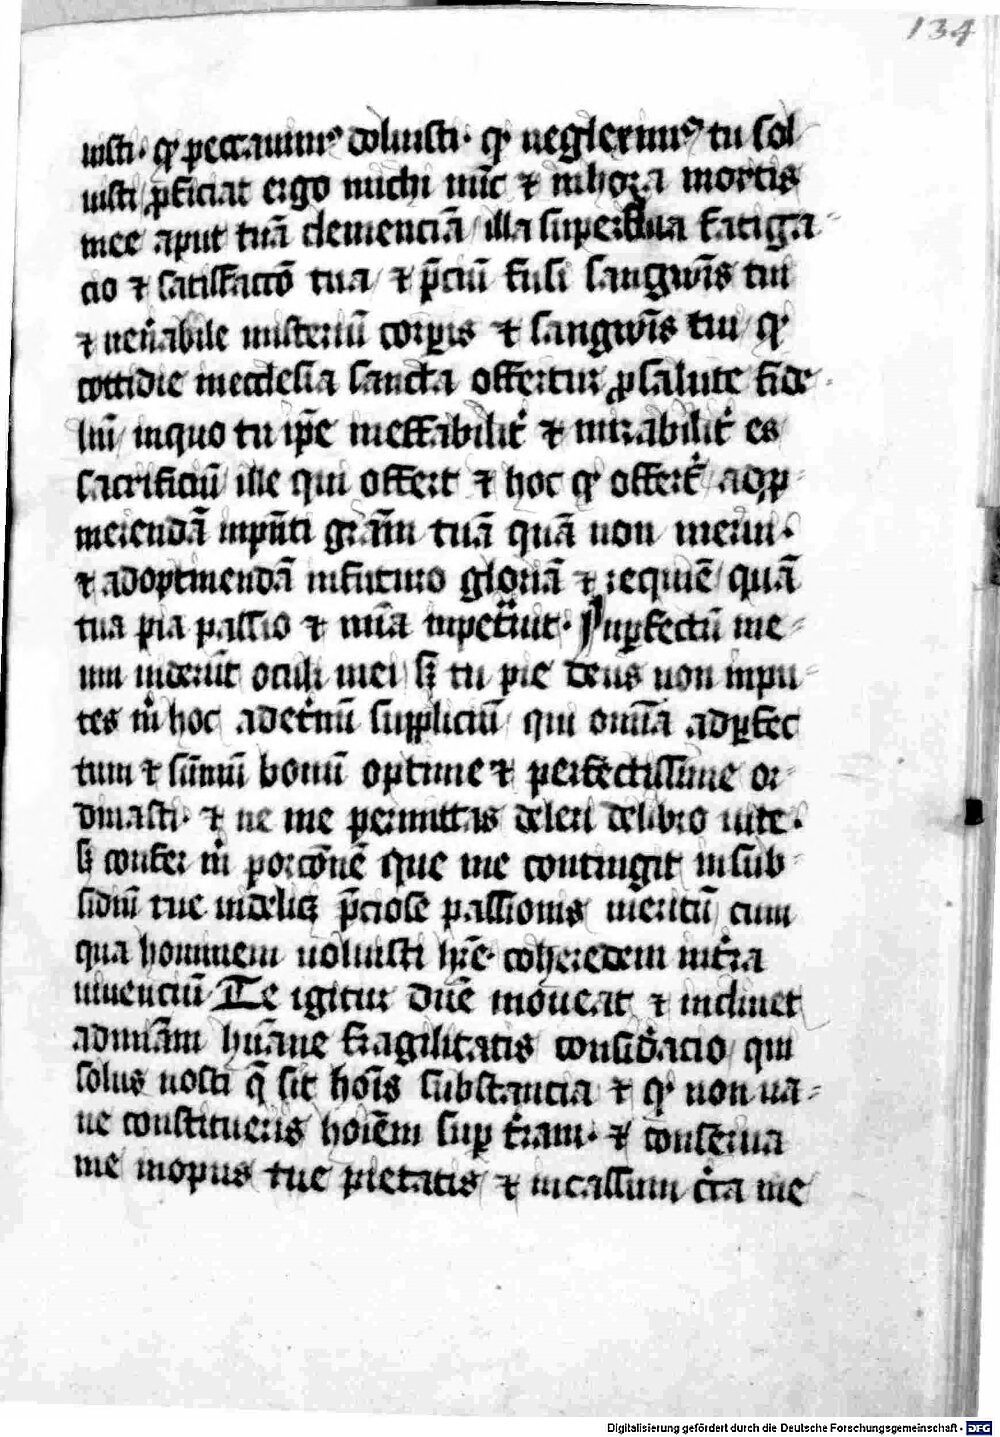 134
uisti · qd peccauim᷒ doluisti · qd neglexim᷒ tu sol
uisti proficiat ergo michi nūc ⁊ inhora mortis
mee aput tuā clemenciā illa superflua fatiga-
cio ⁊ satisfacciō tua ⁊ p̄ciū fusi sangwīs tui
⁊ ven̄abile misteriū corꝑis ⁊ sangwīs tui qd
cottidie inecclesia sancta offertur ꝓ salute fide-
liū inquo tu ip̄e ineffabilit̉ ⁊ mirabilit̉ es
sacrificiū ille qui offert ⁊ hoc qd offert̉ adp-
merendā inpn̄ti grām tuā quā non merui.
⁊ adoptinendā infuturo gloriā ⁊ requiē quā
tua pia passio ⁊ mīa inpetrauit · Inꝑfectū me-
um uiderūt oculi mei sꝫ tu pie deus non inpu-
tes m̉ hoc adet̉nū suppliciū qui omīa adꝑfec
tum ⁊ sūmū bonū optime ⁊ perfectissime or-
dinasti · ⁊ ne me permittas deleri delibro uite.
sꝫ confer m̉ porcōnē que me contingit insub-
sidiū tue uidelicꝫ p̄ciose passionis meritū cum
qua hominem uoluisti hr̄e coheredem int̉ra
uiuenciū Te igitur dūe moueat ⁊ inclinet
admīam hūane fragilitatis consid̉acio qui
solus nosti q̄ sit hoīs substancia ⁊ qd non ua-
ne constitueris hoīēm suꝑ t̉ram · ⁊ conserua
me inopus tue pietatis ⁊ incassum c̉ca me
Digitalisierung gefördert durch die Deutsche Forschungsgemeinschaft - DFG